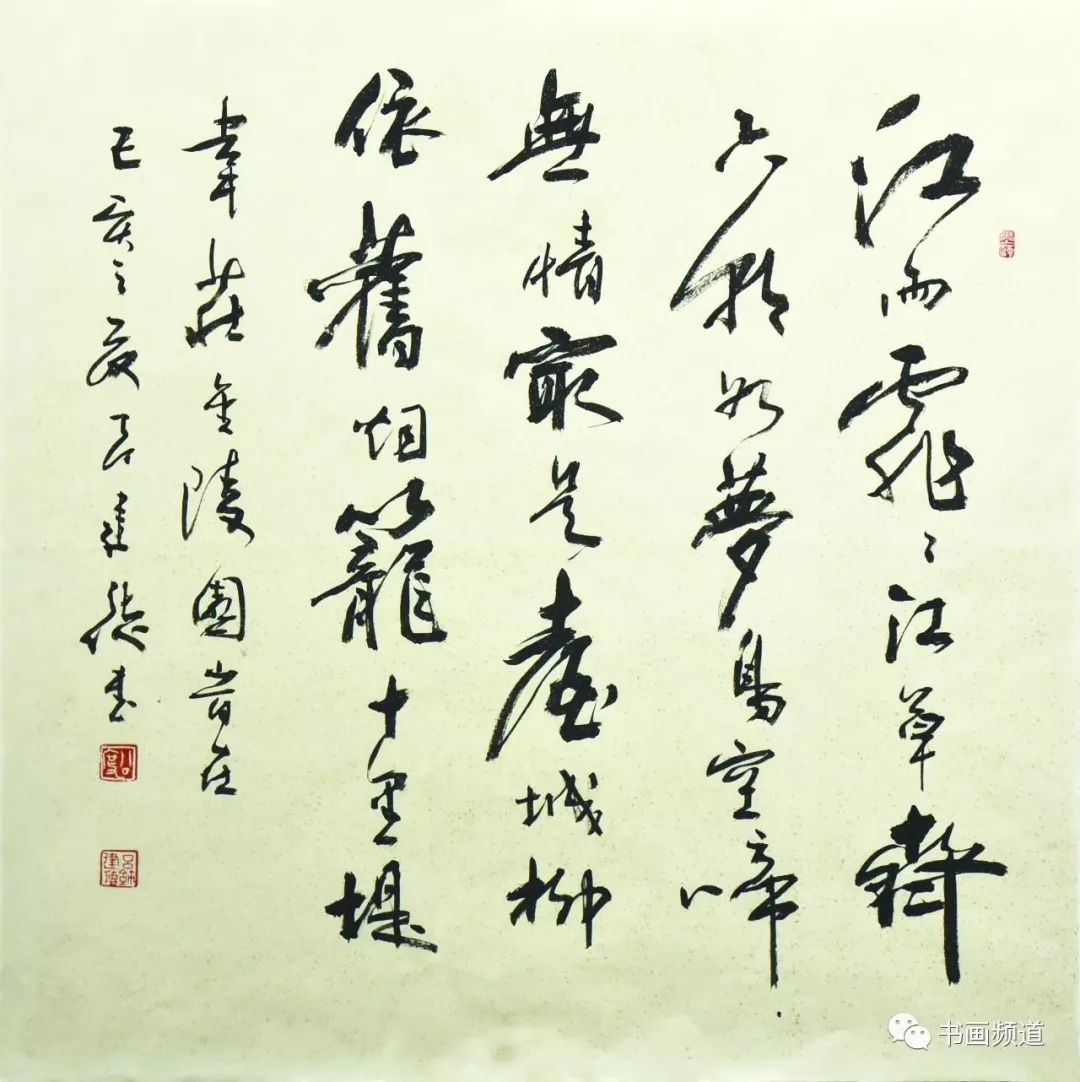 江雨霏〻江草齊
六朝如夢鳥空啼
無情最是臺城柳
依舊烟籠十里堤
韋莊金陵圖
己亥之夏吕建德书
书画频道